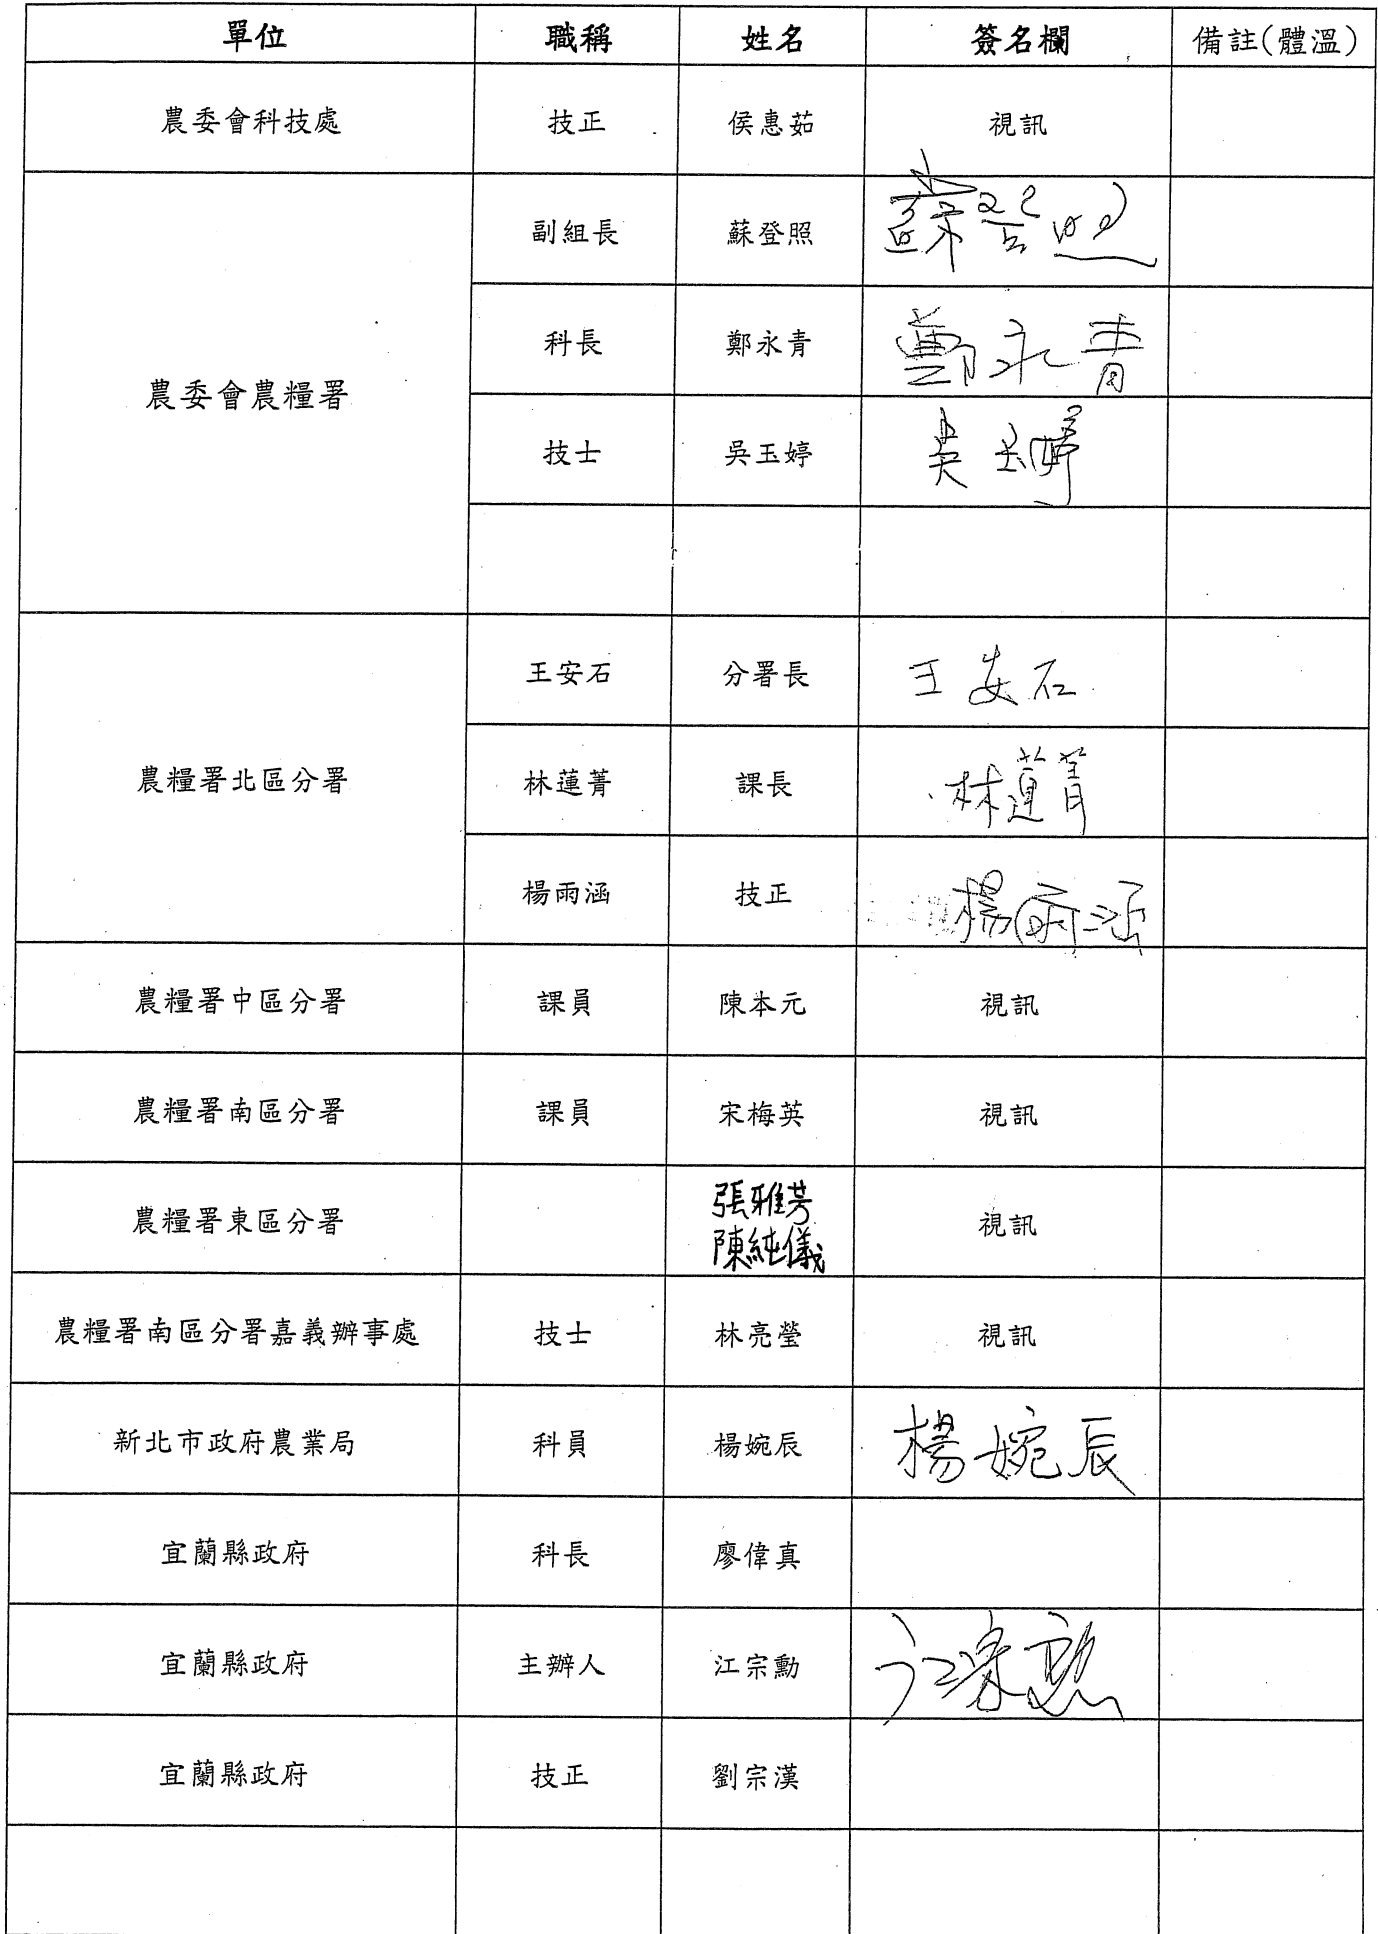 單位 職稱 姓名 簽名欄 備註(體溫)
農委會科技處 技正 侯惠茹 視訊
農委會農糧署 副組長 蘇登照 蘇登照
科長 鄭永青 鄭永青
技士 吳玉婷 吳玉婷
農糧署北區分署 王安石 分署長 王安石
林蓮菁 課長 林蓮菁
楊雨涵 技正 楊雨涵
農糧署中區分署 課員 陳本元 視訊
農糧署南區分署 課員 宋梅英 視訊
農糧署東區分署 張雅芳 視訊
陳純儀
農糧署南區分署嘉義辦事處 技士 林亮瑩 視訊
新北市政府農業局 科員 楊婉辰 楊婉辰
宜蘭縣政府 科長 廖偉真
宜蘭縣政府 主辦人 江宗勳 江宗勳
宜蘭縣政府 技正 劉宗漢